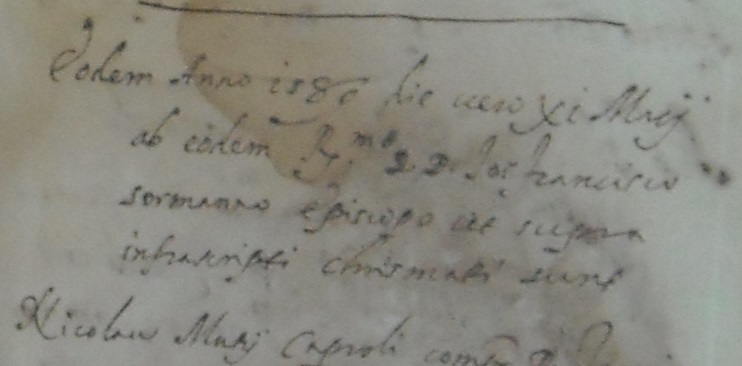 Eodem Anno 1586 die vero xi Maij
ab eodem R.mo D. D. Jo: Francisco
sormanno episcopo ut supra
infrascripti chrismati sunt
Nicolaus Marij Caproli